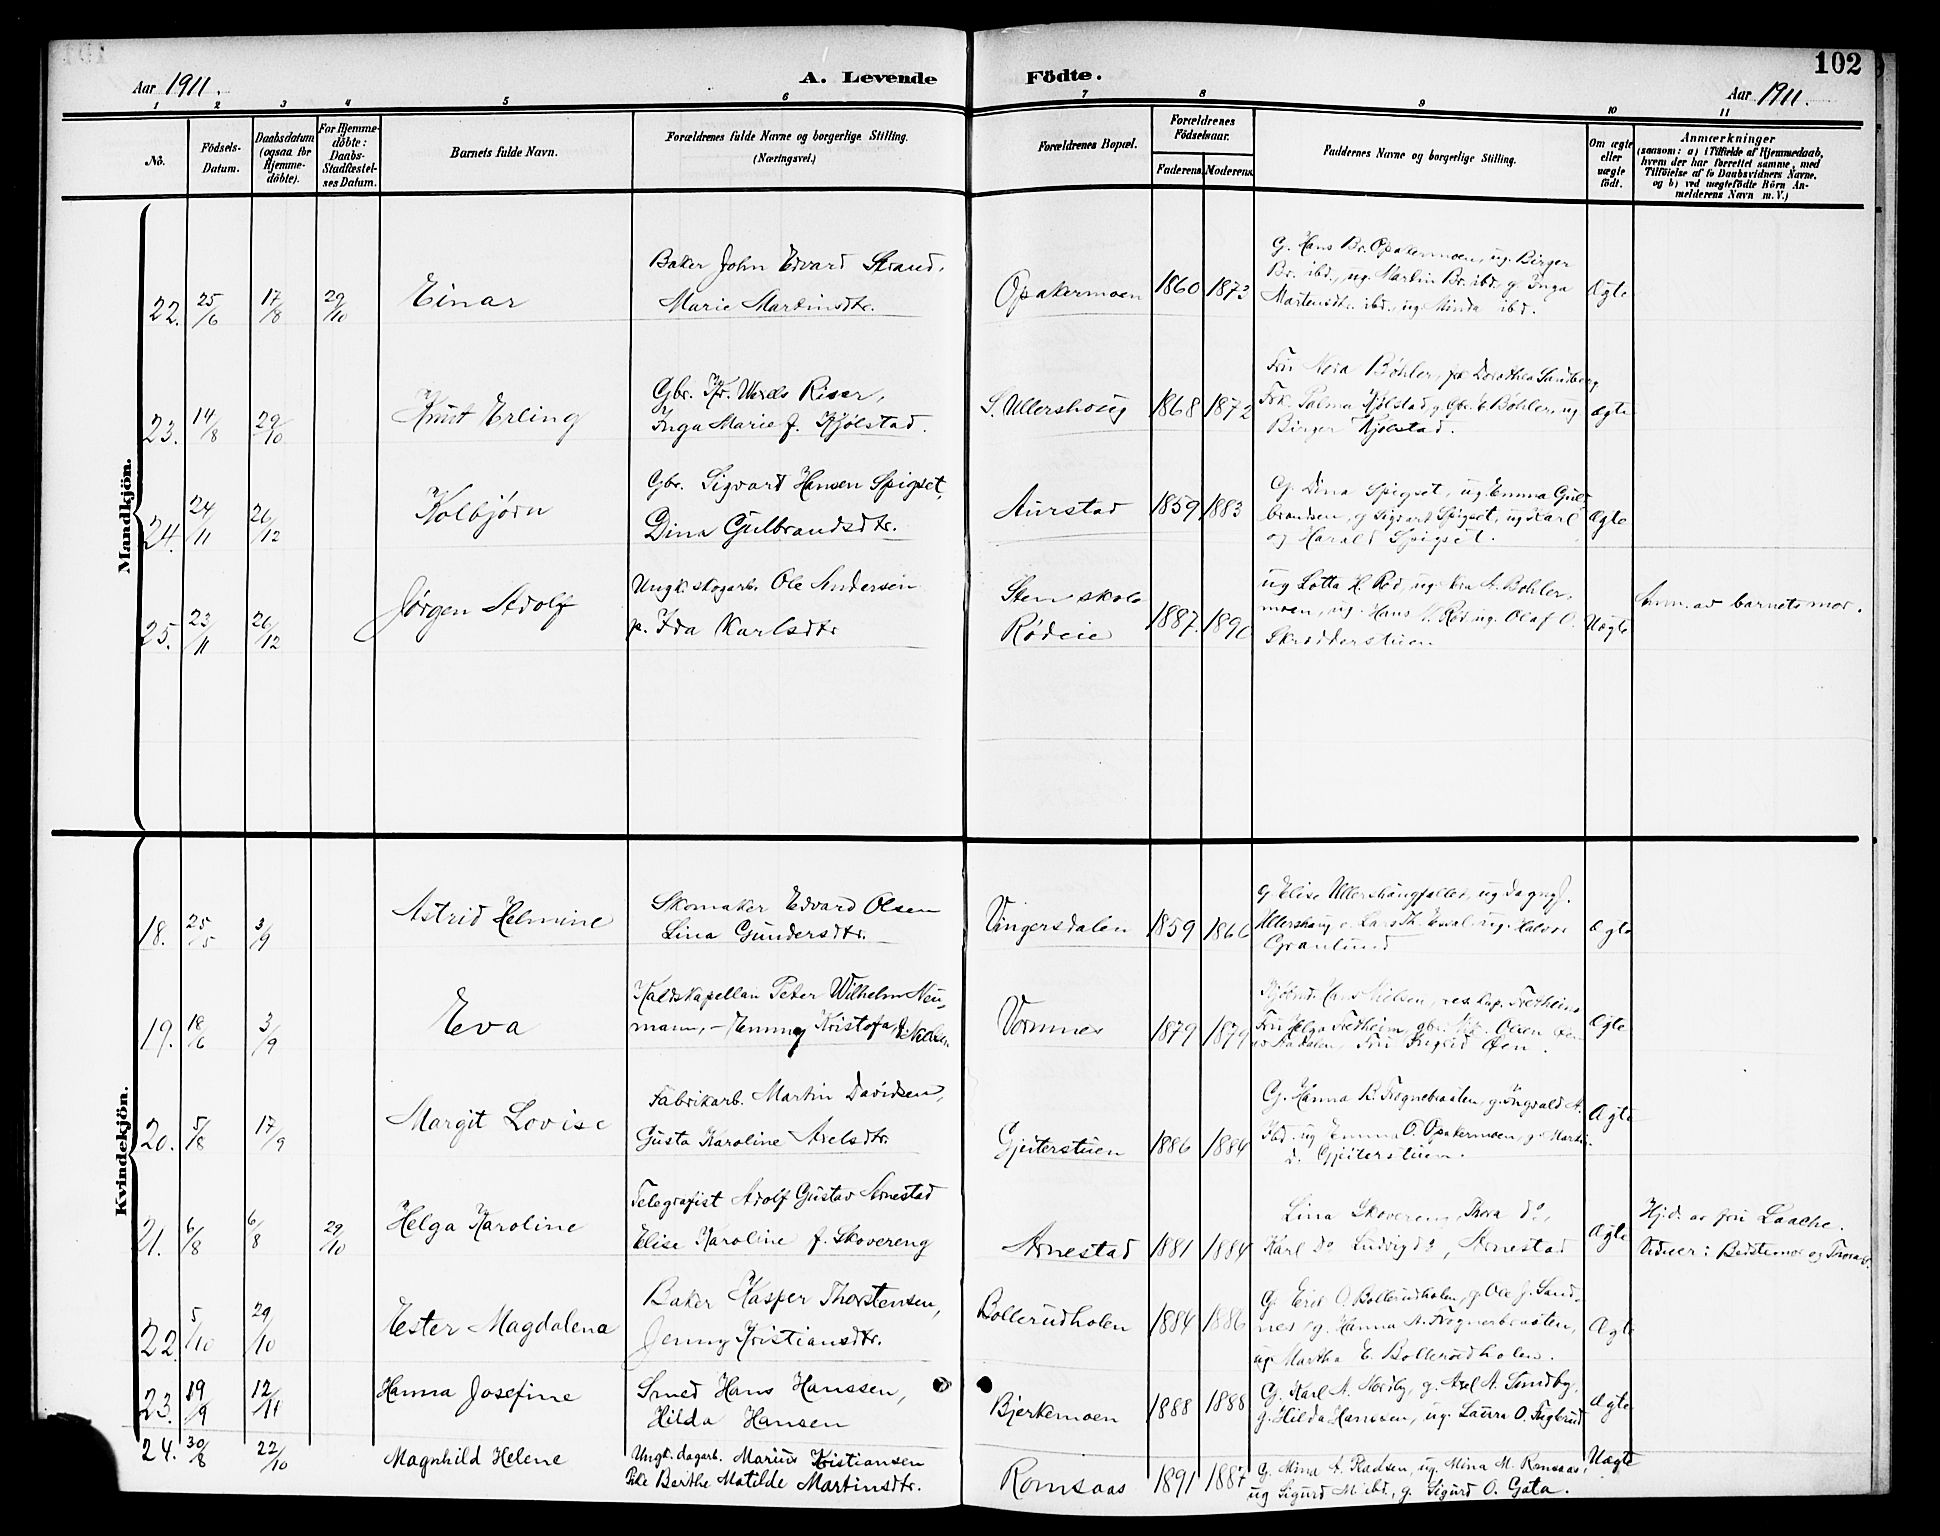 102
Aar 1911.
A. Levende Födte.
Aar 1911.
1 2 3 4 5 6 7 8 9 10 11
No.
Födsels-
Datum.
Daabsdatum
(ogsaa for
Hjemme-
döbte).
For Hjemme-
döbte:
Daabs-
Stadfæstel-
ses Datum.
Barnets fulde Navn.
Forældrenes fulde Navne og borgerlige Stilling.
(Næringsvei.)
Forældrenes Bopæl.
Forældrenes
Födselsaar.
Faderens. Moderens.
Faddernes Navne og borgerlige Stilling.
Om ægte
eller
uægte
födt.
Anmærkninger
(saasom: a) i Tilfælde af Hjemmedaab,
hvem der har forrettet samme, med
Tilföielse af to Daabsvidners Navne,
og b) ved uægtefödte Börn An-
melderens Navn m.V.)
Mandkjön.
22. 25/6 17/8 29/10 Einar
Baker John Edvard Strand,
Marie Martinsdtr.
Opakermoen 1860 1873
G. Hans Br. Opakermoen, ug. Birger
Br. ibd., ug. Martin Br. ibd., g. Inga
Martensdtr. ibd., ug. Minda ibd.
Ægte
23. 14/8 29/10 Knut Erling
Gbr. Kr. Wexels Riser,
Inga Marie f. Kjølstad.
S. Ullershoug 1868 1872
Fru Nora Bøhler, Dorothea Sandberg
Frk. Palma Kjølstad, Gbr. Bøhler, ug
Birger Kjølstad.
ægte
24. 24/11 26/12 Kolbjørn
Gbr. Sigvard Hansen Spigset,
Dina Gulbrandsdtr.
Aurstad 1859 1883
G. Dina Spigset, ug. Emma Gul-
brandsen, g. Sigvard Spigset, ug. Karl
og Harald Spigset.
Ægte
25. 23/11 26/12 Jørgen Adolf
Ungk. skogarb. Ole Andersen
p. Ida Karlsdtr
Stenskole
Rødeie
1887. 1890
ug Lotta H. Rød, ug. A. Bøhler-
moen, ug. Hans Rød, ug. Olaf O.
Skrædderstuen
Uægte
Anm. av barnets mor.
Kvindekjön.
18. 25/5 3/9 Astrid Helmine
Skomaker Edvard Olsen
Lina Gundersdtr.
Vingersdalen 1859 1866
g Elise
Ullershaug ug. Halvor
Granlund
Ægte
19. 18/6 3/9 Eva
Kaldskapellan Peter Wilhelm Neu-
mann, - Emmy Kristofa f. Nielsen
Vormnes 1879 1879
Hans Nielsen, res. kap. Fretheim
Fru Helga Fretheim, gbr.
Fru
Ægte
20. 5/8 17/9 Margit Lovise
Fabrikarb. Martin Davidsen,
Gusta Karoline Axelsdtr.
Gjeiterstuen 1886 1884
G. Hanna K. Frognebraaten, g. Ingvald A.
Ibd. ug Emma O. Opakermoen, g. Martin
D. Gjeiterstuen.
Ægte
21. 6/8 6/8 29/10 Helga Karoline
Telegrafist Adolf Gustav Arnestad
Elise Karoline f. Skovereng
Arnestad 1881 1884
Lina Skovereng, Thora do,
Karl do Ludvig do, Arnestad
Ægte
Hj.d. av fru Laache.
Vidner: Bedstemor og Thora S.
22. 5/10 29/10 Ester Magdalena
Baker Kasper Thorstensen,
Jenny Kristiansdtr.
Bollerudholen 1884 1886
G. Erik O. Bollerudholen, g. Ole J. Sand-
nes, g. Hanna A. Frognerbraaten,
ug. Martha E. Bollerudholen.
Ægte
23. 19/9 12/11 Hanna Josefine
Smed Hans Hanssen,
Hilda Hansen
Bjerkemoen 1888 1888
G. Karl A. Nordby, g. Axel A. Sundby,
g. Hilda Hanssen, ug. Laura O. Fuglerud
Ægte
24. 30/8 22/10 Magnhild Helene
Ungk. dagarb. Marius Kristiansen
Pike Berthe Matilde Martinsdtr.
Romsaas 1891 1887
G. Mina A. Radsen, ug. Mina M. Romsaas,
ug Sigurd M. ibd., g. Sigurd O. Gata.
Uægte